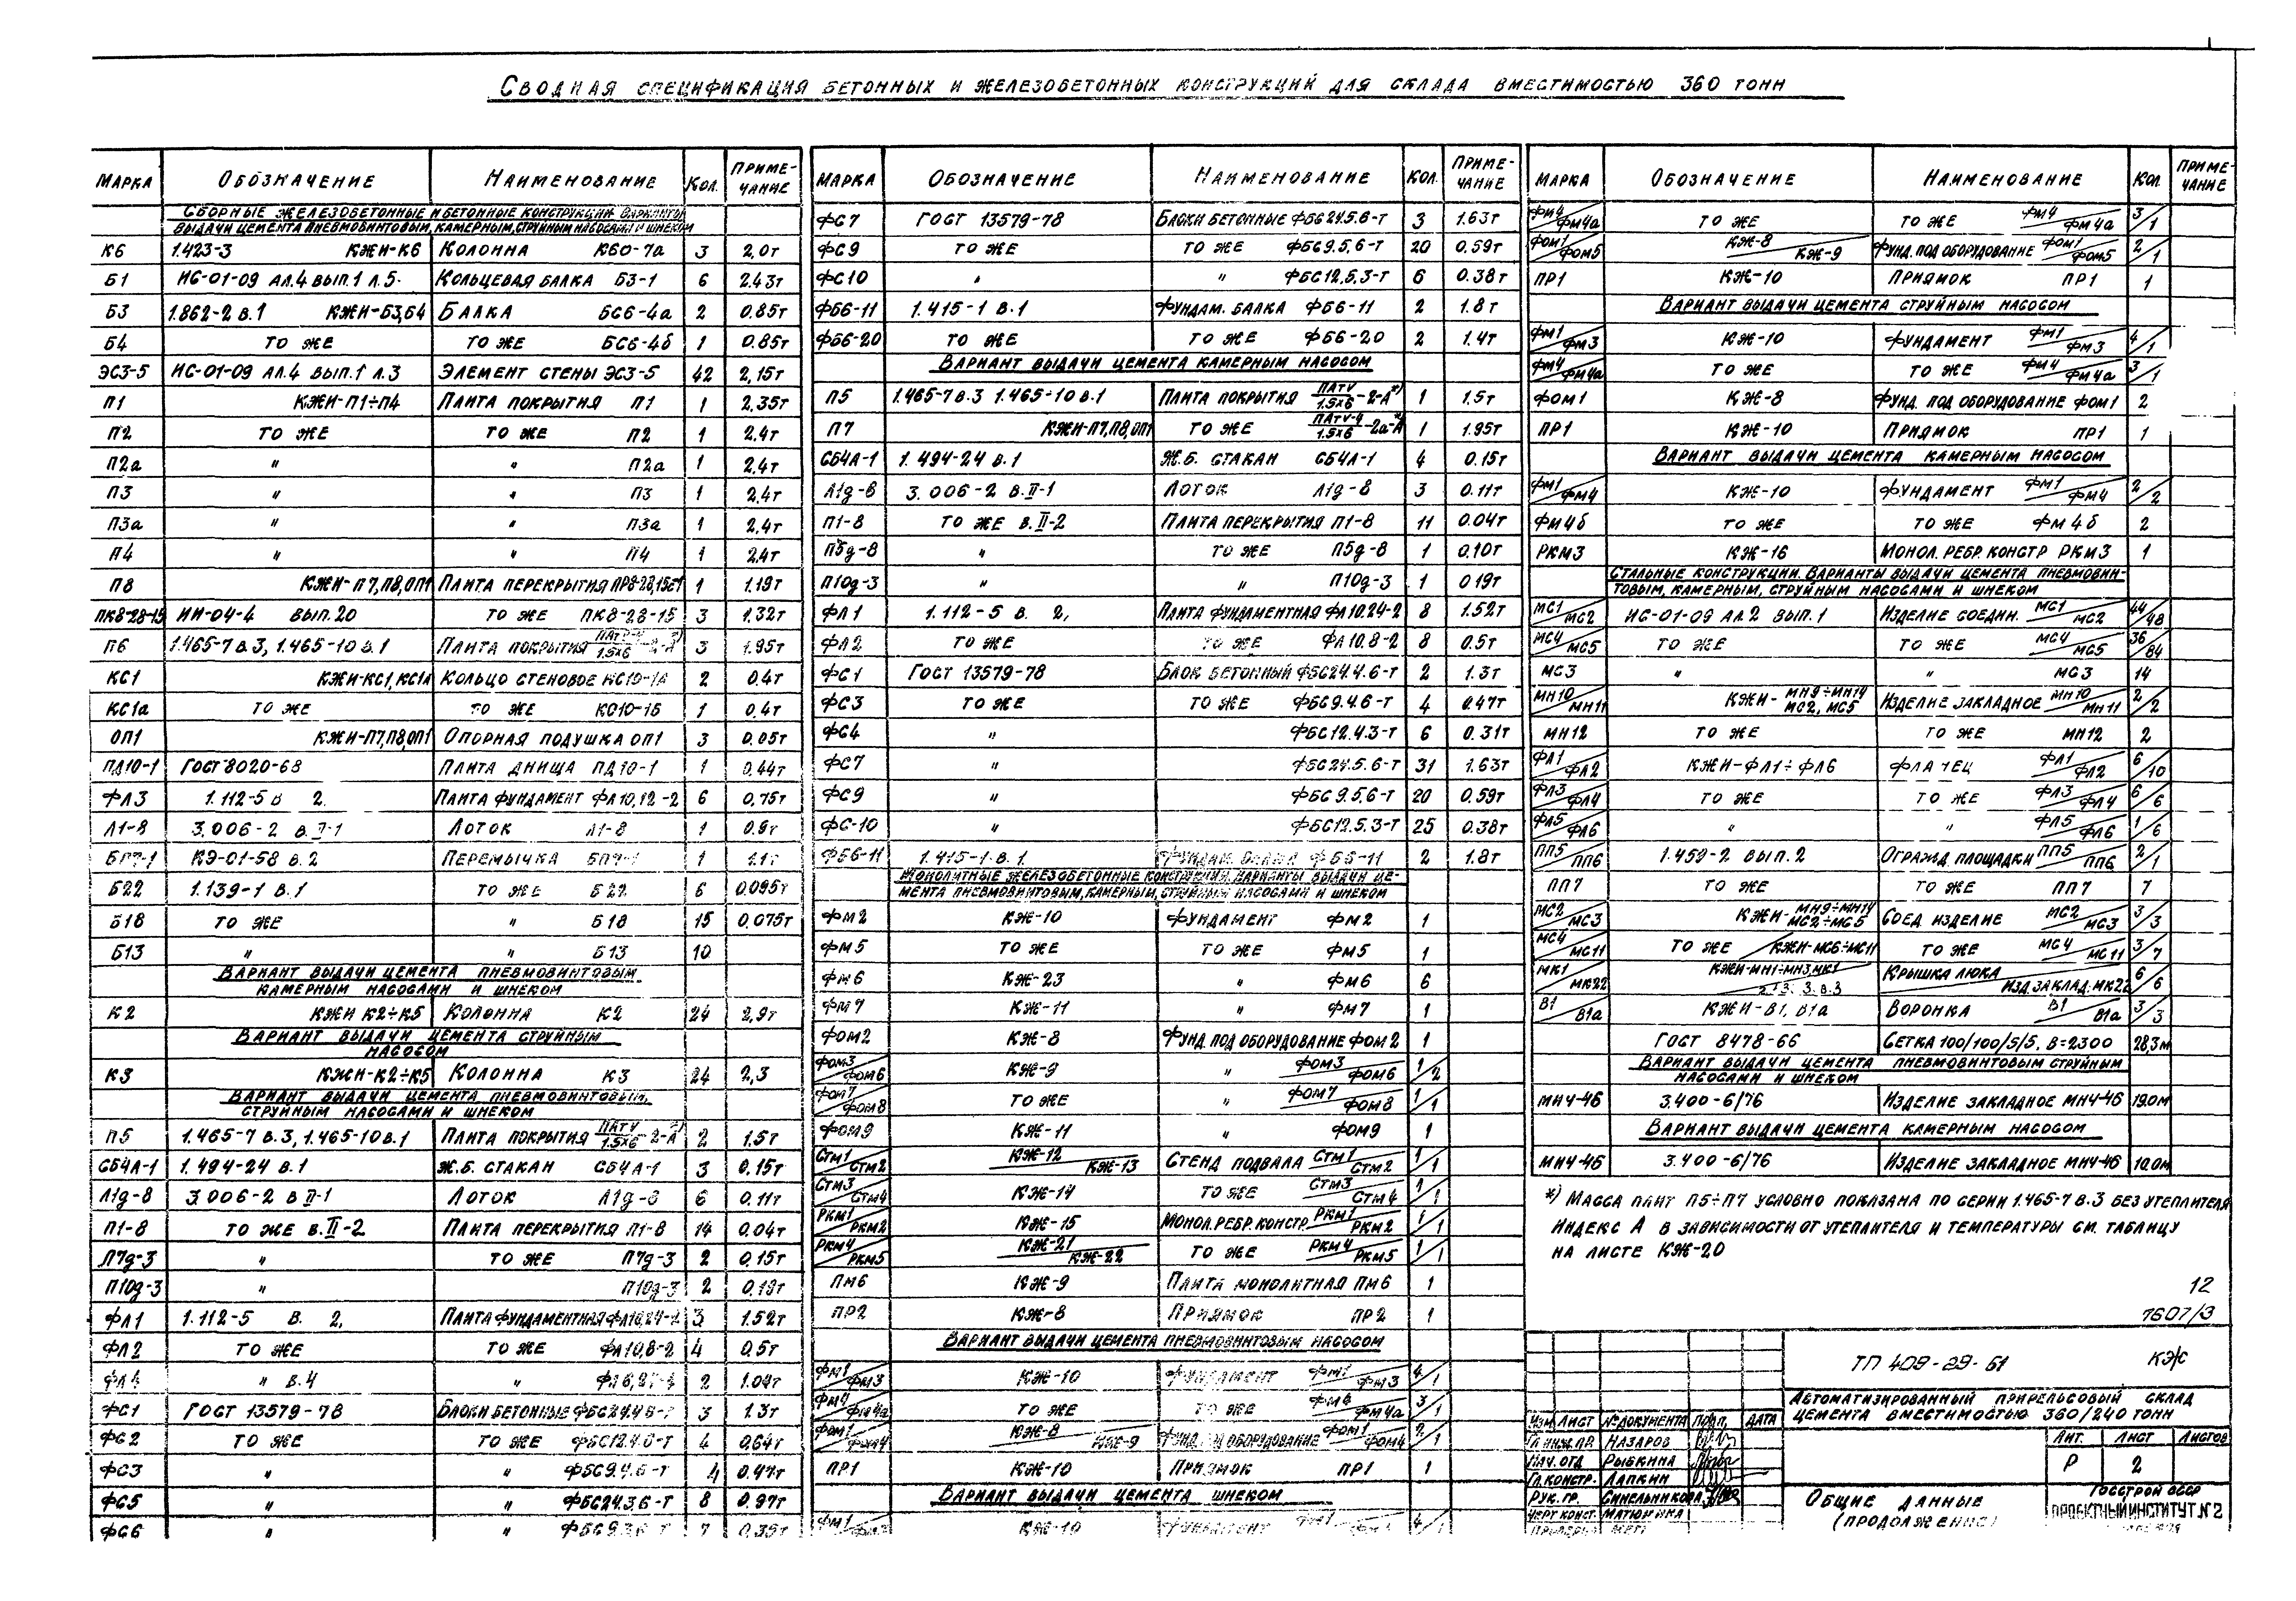 Сводная спецификация бетонных и железобетонных конструкций для склада вместимостью 360 тонн
Марка Обозначение Наименование Кол. Приме-чание
Сборные железобетонные и бетонные конструкции. Варианты
выдачи цемента пневмовинтовым, камерным, струйным насосами и шнеком
К6 1.423-3 КЖИ-К6 Колонна К60-7а 3 2,0т
Б1 ИС-01-09 Ал.4 вып.1 л.5 Кольцевая балка Б3-1 6 2.43т
Б3 1.862-2 в.1 КЖИ-Б3,Б4 Балка БС6-4а 2 0.85т
Б4 то же то же БС6-4б 1 0.85т
ЭС3-5 ИС-01-09 Ал.4 вып.1 л.3 Элемент стены ЭС3-5 42 2,15т
П1 КЖИ-П1÷П4 Плита покрытия П1 1 2.35т
П2 то же то же П2 1 2.4т
П2а " " П2а 1 2.4т
П3 " " П3 1 2,4т
П3а " " П3а 1 2,4т
П4 " " П4 1 2.4т
П8 КЖИ-П7,П8,ОП1 Плита перекрытия 1 1.19т
ПК8-28-15 ИИ-04-4 вып.20 то же ПК8-28-15 3 1.32т
П6 1.465-7 в.3, 1.465-10 в.1 Плита покрытия 3 1.95т
КС1 КЖИ-КС1,КС1а Кольцо стеновое 2 0.4т
КС1а то же то же 1 0.4т
ОП1 КЖИ-П7,П8,ОП1 Опорная подушка ОП1 3 0.05т
ПД10-1 ГОСТ 8020-68 Плита днища ПД10-1 1 0.44т
ФЛ3 1.112-5 в 2. Плита фундамент ФЛ10,12-2 6 0,75т
Л1-8 3.006-2 в.II-1 Лоток Л1-8 1 0.9т
КЭ-01-58 в.2 Перемычка 1 1.1т
Б22 1.139-1 в.1 то же Б22 6 0.095т
Б18 то же " Б18 15 0.075т
Б13 " " Б13 10
Вариант выдачи цемента пневмовинтовым
камерным насосами и шнеком
К2 КЖИ К2÷К5 Колонна К2 24 2,9т
Вариант выдачи цемента струйным
насосом
К3 КЖИ-К2÷К5 Колонна К3 24 2,3
Вариант выдачи цемента пневмовинтовым,
струйным насосами и шнеком
П5 1.465-7 в.3, 1.465-10 в.1 Плита покрытия ПАТV/1.5х6-2-А*) 2 1.5т
СБ4А-1 1.494-24 в.1 Ж.б. стакан СБ4А-1 3 0.15т
Л1д-8 3.006-2 в II-1 Лоток Л1д-8 6 0.11т
П1-8 то же в.II-2 Плита перекрытия П1-8 14 0.04т
П7д-3 " то же П7д-3 2 0.15т
П10д-3 " П10д-3 2 0.19т
ФЛ1 1.112-5 в. 2, Плита фундаментная ФЛ10,24-2 3 1.52т
ФЛ2 то же то же ФЛ10,8-2 4 0.5т
ФЛ4 " в.4 " 2 1.04т
ФС1 ГОСТ 13579-78 Блоки бетонные ФБС24.4.6-т 3 1.3т
ФС2 то же то же ФБС12.4.6-т 4 0,64т
ФС3 " " ФБС9.4.6-т 4 0.47т
ФС5 " " ФБС24.3.6-т 8 0.97т
ФС6 " " ФБС9.3.6-т 7 0.35т
Марка Обозначение Наименование Кол. Приме-чание
ФС7 ГОСТ 13579-78 Блоки бетонные ФБС24.5.6-т 3 1.63т
ФС9 то же то же ФБС9.5.6-т 20 0.59т
ФС10 " " ФБС12.5.3-т 6 0.38т
ФБ6-11 1.415-1 в.1 Фундам. балка ФБ6-11 2 1.8т
ФБ6-20 то же то же ФБ6-20 2 1.4т
Вариант выдачи цемента камерным насосом
П5 1.465-7 в.3 1.465-10 в.1 Плита покрытия ПАТV/1.5х6-2-А*) 1 1.5т
П7 КЖИ-П7,П8,ОП1 то же ПАТV-4/1.5х6-2а-А*) 1 1.95т
СБ4А-1 1.494-24 в.1 Ж.б. стакан СБ4А-1 4 0.15т
Л1д-8 3.006-2 в.II-1 Лоток Л1д-8 3 0.11т
П1-8 то же в.II-2 Плита перекрытия П1-8 11 0.04т
П5д-8 " то же П5д-8 1 0.10т
П10д-3 " " П10д-3 1 0.19т
ФЛ1 1.112-5 в. 2, Плита фундаментная ФЛ10.24-2 8 1.52т
ФЛ2 то же то же ФЛ10.8-2 8 0.5т
ФС1 ГОСТ 13579-78 Блок бетонный ФБС24.4.6-т 2 1.3т
ФС3 то же то же ФБС9.4.6-т 4 0.47т
ФС4 " ФБС12.4.3-т 6 0.31т
ФС7 " ФБС24.5.6-т 31 1.63т
ФС9 " ФБС9.5.6-т 20 0.59т
ФС-10 " ФБС12.5.3-т 25 0.38т
ФБ6-11 1.415-1 в.1. Фундам. балка ФБ6-11 2 1.8т
Монолитные железобетонные конструкции. Варианты выдачи це-
мента пневмовинтовым, камерным, струйным насосами и шнеком
ФМ2 КЖ-10 Фундамент ФМ2 1
ФМ5 то же то же ФМ5 1
ФМ6 КЖ-23 " ФМ6 6
ФМ7 КЖ-11 " ФМ7 1
ФОМ2 КЖ-8 Фунд. под оборудование ФОМ2 1
ФОМ3/ФОМ6 КЖ-9 " ФОМ3/ФОМ6 1/2
ФОМ7/ФОМ8 то же " ФОМ7/ФОМ8 1/1
ФОМ9 КЖ-11 " ФОМ9 1
СТМ1/СТМ2 КЖ-12/КЖ-13 Стенд подвала СТМ1/СТМ2 1/1
СТМ3/СТМ4 КЖ-14 то же СТМ3/СТМ4 1/1
РКМ1/РКМ2 КЖ-15 Монол. ребр. констр. РКМ1/РКМ2 1/1
РКМ4/РКМ5 КЖ-21/КЖ-22 то же РКМ4/РКМ5 1/1
ПМ6 КЖ-9 Плита монолитная ПМ6 1
ПР2 КЖ-8 Приямок ПР2 1
Вариант выдачи цемента пневмовинтовым насосом
ФМ1/ФМ3 КЖ-10 Фундамент ФМ1/ФМ3 4/1
ФМ4/ФМ4а то же то же ФМ4/ФМ4а 3/1
ФОМ1/ФОМ4 КЖ-8/КЖ-9 Фунд. под оборудование ФОМ1/ФОМ4 2/1
ПР1 КЖ-10 Приямок ПР1 1
Вариант выдачи цемента шнеком
ФМ1/ФМ3 КЖ-10 Фундамент ФМ1/ФМ3 4/1
Марка Обозначение Наименование Кол. Приме-чание
ФМ4/ФМ4а то же то же ФМ4/ФМ4а 3/1
ФОМ1/ФОМ5 КЖ-8/КЖ-9 Фунд. под оборудование ФОМ1/ФОМ5 2/1
ПР1 КЖ-10 Приямок ПР1 1
Вариант выдачи цемента струйным насосом
ФМ1/ФМ3 КЖ-10 Фундамент ФМ1/ФМ3 4/1
ФМ4/ФМ4а то же то же ФМ4/ФМ4а 3/1
ФОМ1 КЖ-8 Фунд. под оборудование ФОМ1 2
ПР1 КЖ-10 Приямок ПР1 1
Вариант выдачи цемента камерным насосом
ФМ1/ФМ4 КЖ-10 Фундамент ФМ1/ФМ4 2/2
ФМ4б то же то же ФМ4б 2
РКМ3 КЖ-16 Монол. ребр. констр РКМ3 1
Стальные конструкции. Варианты выдачи цемента пневмовин-
товым, камерным, струйным насосами и шнеком
МС1/МС2 ИС-01-09 Ал.2 вып.1 Изделие соедин. МС1/МС2 44/48
МС4/МС5 то же то же МС4/МС5 36/84
МС3 " " МС3 14
МН10/МН11 КЖИ-МН9÷МН14/МС2, МС5 Изделие закладное МН10/МН11 2/2
МН12 то же то же МН12 2
ФЛ1/ФЛ2 КЖИ-ФЛ1÷ФЛ6 Фланец ФЛ1/ФЛ2 6/10
ФЛ3/ФЛ4 то же то же ФЛ3/ФЛ4 6/6
ФЛ5/ФЛ6 " " ФЛ5/ФЛ6 1/6
ПП5/ПП6 1.459-2 вып.2 Огражд. площадки ПП5/ПП6 2/1
ПП7 то же то же ПП7 7
МС2/МС3 КЖИ-МН9÷МН14/МС2÷МС5 Соед. изделие МС2/МС3 3/3
МС4/МС11 то же/КЖИ-МС6÷МС11 то же МС4/МС11 3/7
МК1/МК22 КЖИ-МН1÷МН3,МК1 Крышка люка/Изд. заклад. МК22 6/6
В1/В1а КЖИ-В1, В1а Воронка В1/В1а 3/3
ГОСТ 8478-66 Сетка 100/100/5/5, В=2300 28,3м
Вариант выдачи цемента пневмовинтовым струйным
насосами и шнеком
МН4-46 3.400-6/76 Изделие закладное МН4-46 19.0м
Вариант выдачи цемента камерным насосом
МН4-46 3.400-6/76 Изделие закладное МН4-46 10.0м
*) Масса плит П5÷П7 условно показана по серии 1.465-7 в.3 без утеплителя
Индекс А в зависимости от утеплителя и температуры см. таблицу
на листе КЖ-20
12
7607/3
ТП 409-29-61 КЖ
Автоматизированный прирельсовый склад
цемента вместимостью 360/240 тонн
Изм. Лист № документа Подп. Дата
Гл.инж.пр. Назаров
Нач. отд Рыбкина
Гл.констр. Лапкин
Рук. гр. Синельникова
Черт конст. Матюшина
Лит. Лист Листов
Р 2
Общие данные
(продолжение)
Госстрой СССР
Проектный институт №2